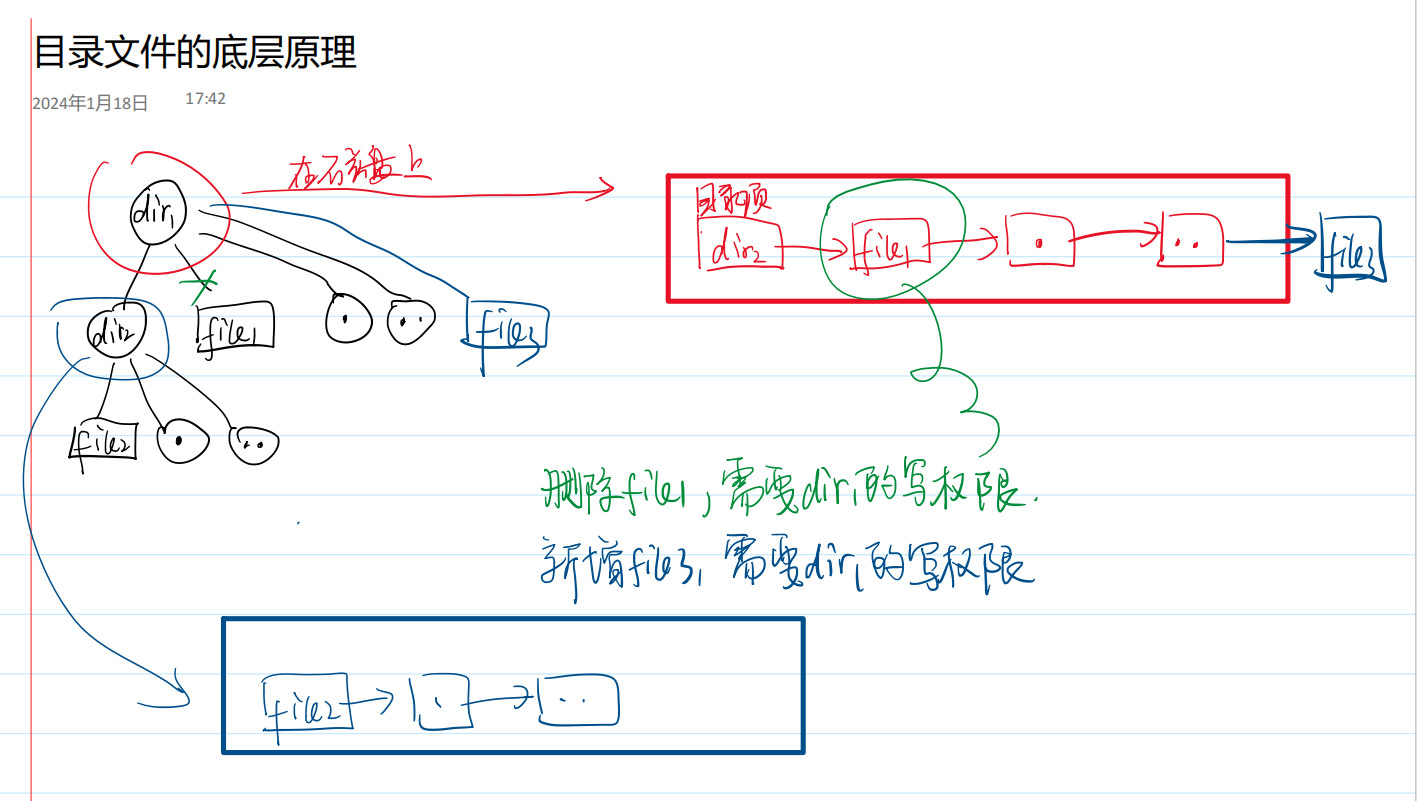 目录文件的底层原理
2024年1月18日 17:42
在磁盘上
目录项
dir1
dir2 file1 . .. file3
dir2 file1 . .. file3
file2 . ..
删除file1,需要dir1的写权限.
新增file3,需要dir1的写权限
file2 . ..